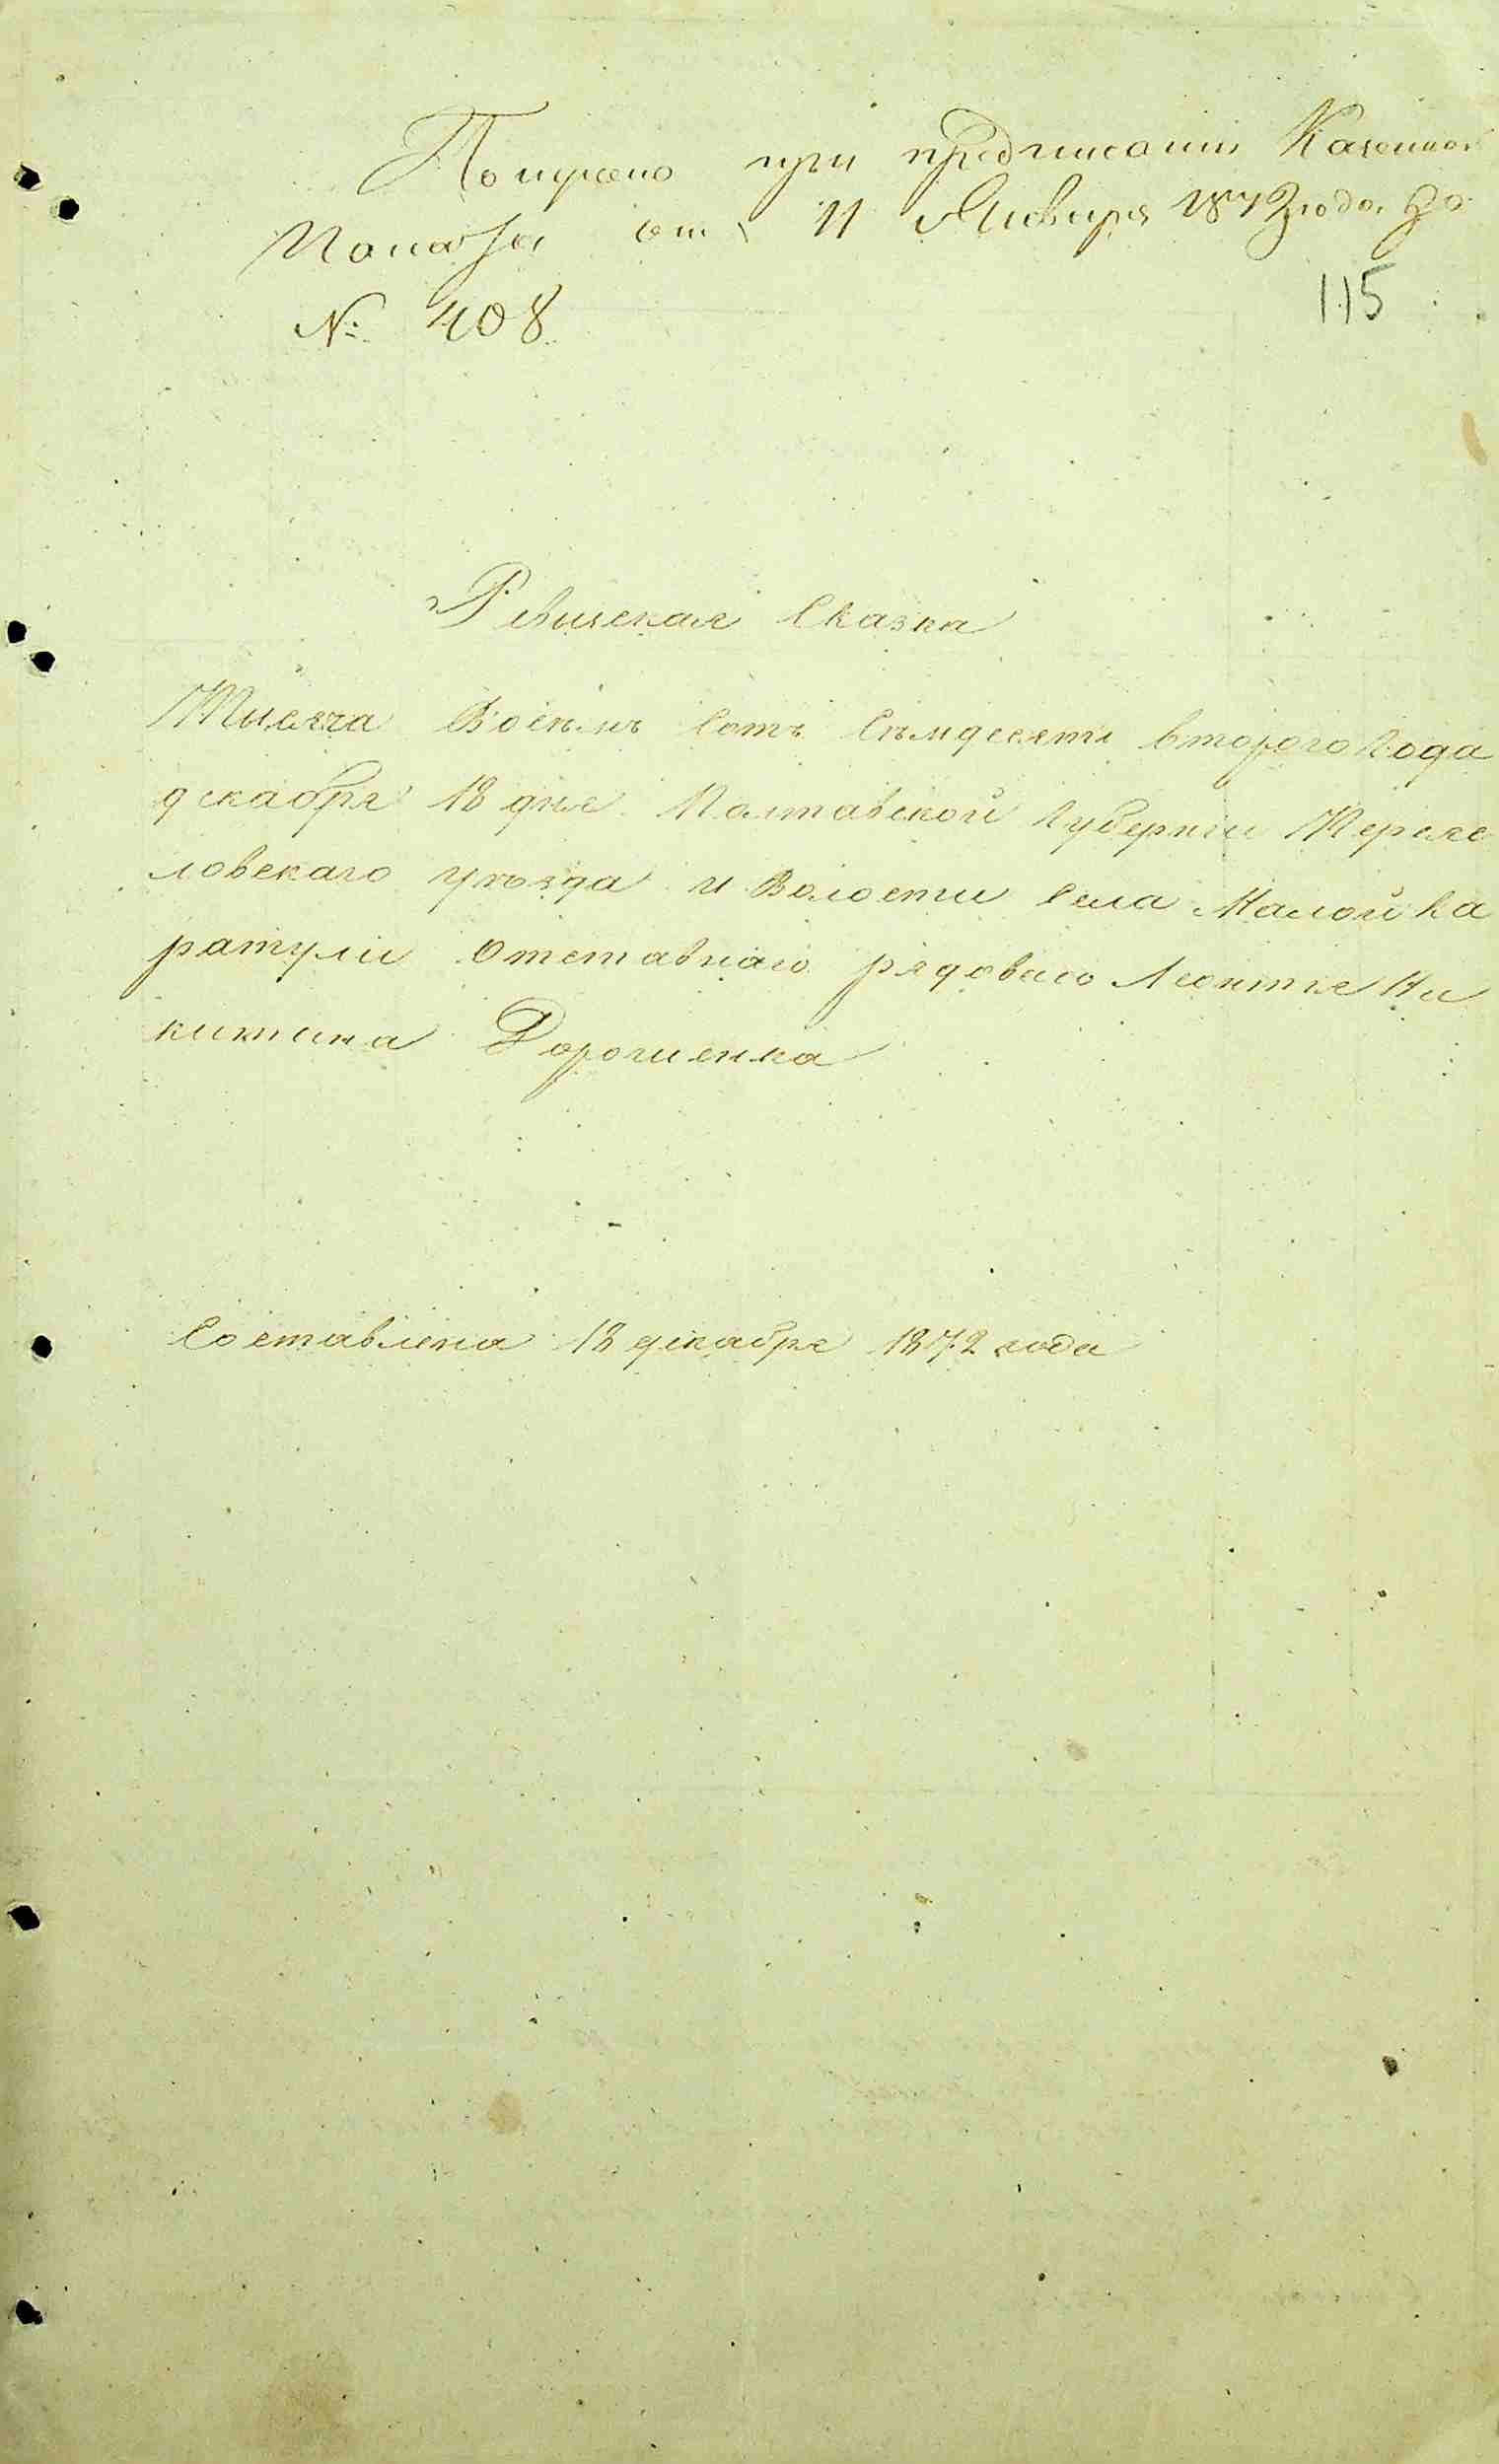 Получено при предписании Казенной
Палаты от 11 Января 1873 года за
№ 408
115
Ревизская Сказка
Тысяча Восемъ Сотъ Семдесятъ втораго Года
декабря 18 дня Полтавской Губернии Переяс
ловскаго уѣзда и Волости Села Малой Ка
ратули Отставнаго рядоваго Леонтия Ни
китина Дорошенка
Составлена 18 декабря 1872 года